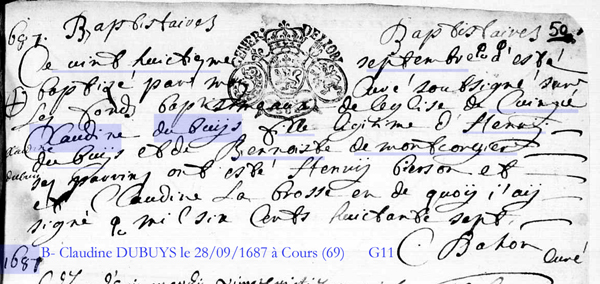 1687. Baptistaires Baptistaires 50
Ce vint huictiesme septembre a esté
baptizé par moy Curé soubsigné sur
les fonds baptismeaux de leglise de
Claudine du buys fille legitime d'Henry
du buys et de Benoiste de montcorgier
ses parrins ont esté Henry Pierson et
et Claudine La brosse en de quoy i'ay
signé ce mil six Cents huictante sept.
Curé
1687
B- Claudine DUBUYS le 28/09/1687 à Cours (69) G11